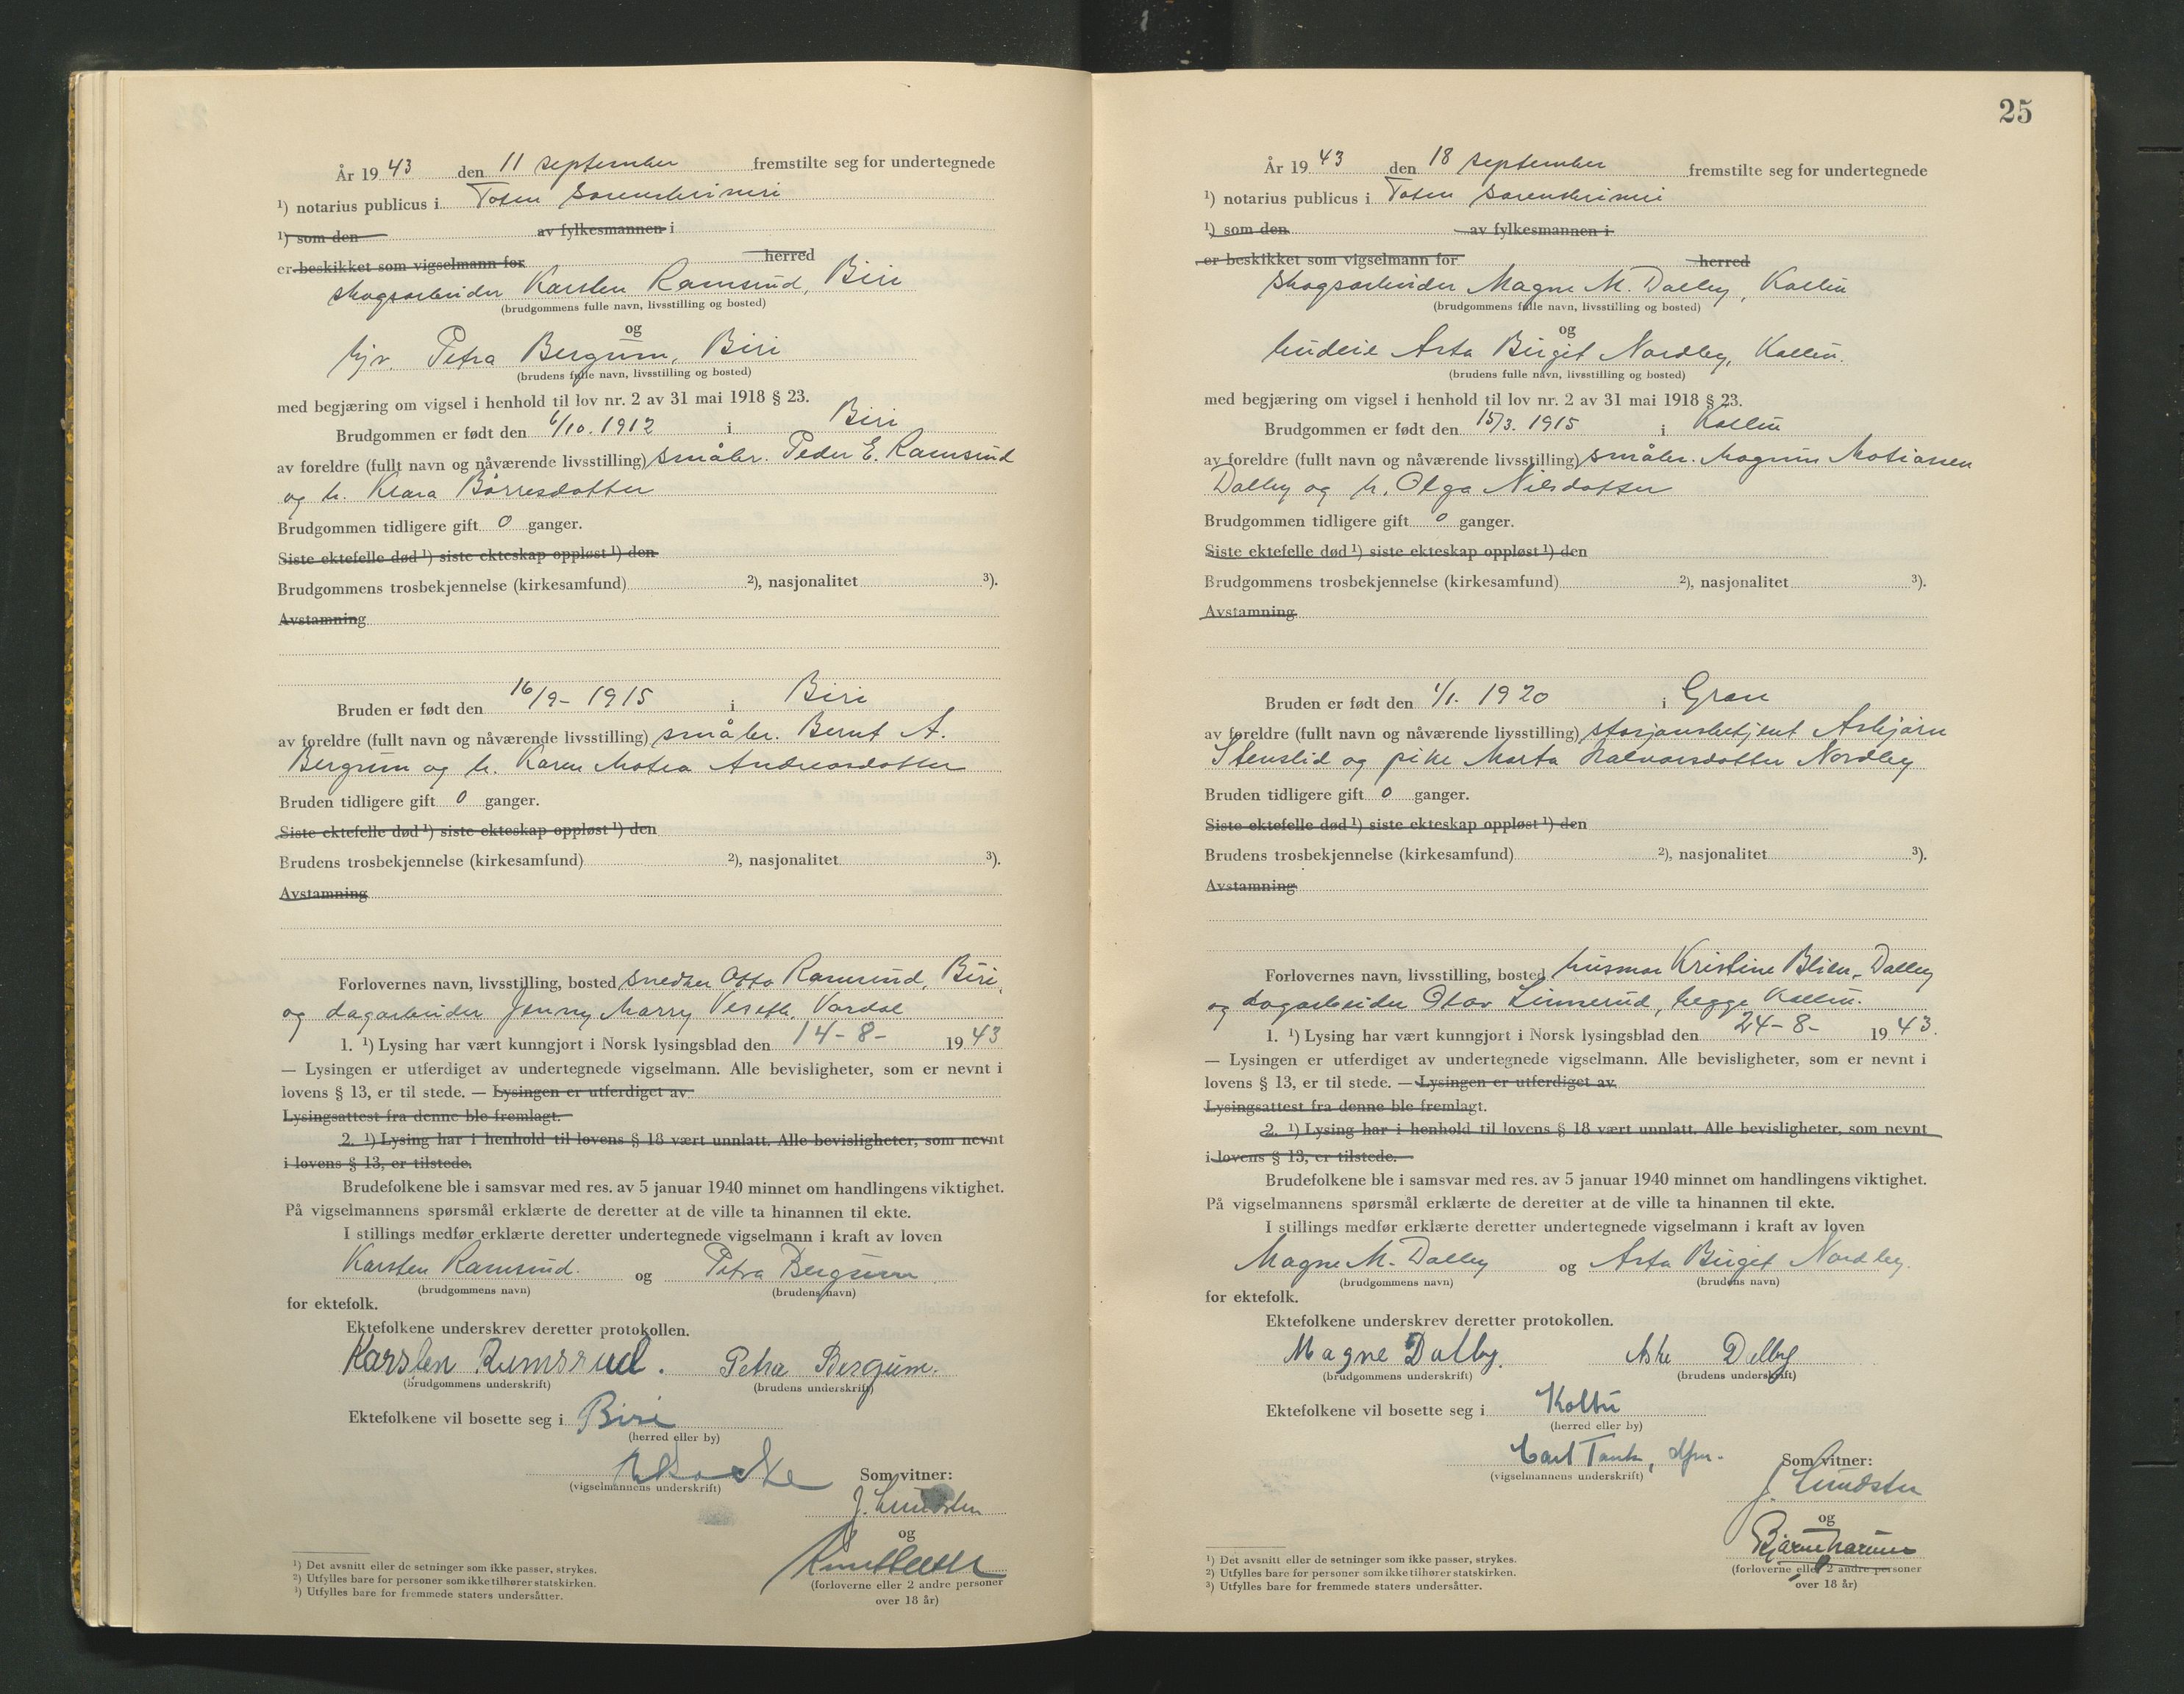 År 19 43 den 11 september fremstilte seg for undertegnede
¹) notarius publicus i Toten sorenskriveri
¹) som den av fylkesmannen i
er beskikket som vigselmann for herred
skogsarbeider Karsten Ramsrud, Biri
(brudgommens fulle navn, livsstilling og bosted)
og
hjv. Petra Bergum, Biri
(brudens fulle navn, livsstilling og bosted)
med begjæring om vigsel i henhold til lov nr. 2 av 31 mai 1918 § 23.
Brudgommen er født den 6/10. 1912 i Biri
av foreldre (fullt navn og nåværende livsstilling) småbr. Peder E. Ramsrud
og h. Klara Børresdatter
Brudgommen tidligere gift 0 ganger.
Siste ektefelle død ¹) siste ekteskap oppløst ¹) den
Brudgommens trosbekjennelse (kirkesamfund) ²), nasjonalitet ³).
Avstamning
Bruden er født den 16/9- 1915 i Biri
av foreldre (fullt navn og nåværende livsstilling) småbr. Bernt A.
Bergum og h. Karen Matea Andreasdatter
Bruden tidligere gift 0 ganger.
Siste ektefelle død ¹) siste ekteskap oppløst ¹) den
Brudens trosbekjennelse (kirkesamfund) ²), nasjonalitet ³).
Avstamning
Forlovernes navn, livsstilling, bosted snedker Otto Ramsrud, Biri,
og dagarbeider Jenny Marry Veseth, Vardal
1. ¹) Lysing har vært kunngjort i Norsk lysingsblad den 14-8- 19 43
— Lysingen er utferdiget av undertegnede vigselmann. Alle bevisligheter, som er nevnt i
lovens § 13, er til stede. — Lysingen er utferdiget av
Lysingsattest fra denne ble fremlagt.
2. ¹) Lysing har i henhold til lovens § 18 vært unnlatt. Alle bevisligheter, som nevnt
i lovens § 13, er tilstede.
Brudefolkene ble i samsvar med res. av 5 januar 1940 minnet om handlingens viktighet.
På vigselmannens spørsmål erklærte de deretter at de ville ta hinannen til ekte.
I stillings medfør erklærte deretter undertegnede vigselmann i kraft av loven
Karsten Ramsrud. og Petra Bergum
(brudgommens navn) (brudens navn)
for ektefolk.
Ektefolkene underskrev deretter protokollen.
Karsten Ramsrud. Petra Bergum.
(brudgommens underskrift) (brudens underskrift)
Ektefolkene vil bosette seg i Biri
(herred eller by)
(vigselmannens underskrift)
Som vitner:
J. Lundsten
og
(forloverne eller 2 andre personer
over 18 år)
¹) Det avsnitt eller de setninger som ikke passer, strykes.
²) Utfylles bare for personer som ikke tilhører statskirken.
³) Utfylles bare for fremmede staters undersåtter.
25
År 19 43 den 18 september fremstilte seg for undertegnede
¹) notarius publicus i Toten sorenskriveri
¹) som den av fylkesmannen i
er beskikket som vigselmann for herred
skogsarbeider Magne M. Dalby, Kolbu
(brudgommens fulle navn, livsstilling og bosted)
og
budeie Asta Birgit Nordby, Kolbu.
(brudens fulle navn, livsstilling og bosted)
med begjæring om vigsel i henhold til lov nr. 2 av 31 mai 1918 § 23.
Brudgommen er født den 15/3. 1915 i Kolbu
av foreldre (fullt navn og nåværende livsstilling) småbr. Magnus Matiassen
Dalby og h. Olga Nilsdatter
Brudgommen tidligere gift 0 ganger.
Siste ektefelle død ¹) siste ekteskap oppløst ¹) den
Brudgommens trosbekjennelse (kirkesamfund) ²), nasjonalitet ³).
Avstamning
Bruden er født den 1/1. 1920 i Gran
av foreldre (fullt navn og nåværende livsstilling) stasjonsbetjent Asbjørn
Stenslid og pike Marta Halvorsdatter Nordby
Bruden tidligere gift 0 ganger.
Siste ektefelle død ¹) siste ekteskap oppløst ¹) den
Brudens trosbekjennelse (kirkesamfund) ²), nasjonalitet ³).
Avstamning
Forlovernes navn, livsstilling, bosted husmor Kristine Blien-Dalby
og dagarbeider Olav Linnerud, begge Kolbu.
1. ¹) Lysing har vært kunngjort i Norsk lysingsblad den 24-8- 19 43.
— Lysingen er utferdiget av undertegnede vigselmann. Alle bevisligheter, som er nevnt i
lovens § 13, er til stede. — Lysingen er utferdiget av
Lysingsattest fra denne ble fremlagt.
2. ¹) Lysing har i henhold til lovens § 18 vært unnlatt. Alle bevisligheter, som nevnt
i lovens § 13, er tilstede.
Brudefolkene ble i samsvar med res. av 5 januar 1940 minnet om handlingens viktighet.
På vigselmannens spørsmål erklærte de deretter at de ville ta hinannen til ekte.
I stillings medfør erklærte deretter undertegnede vigselmann i kraft av loven
Magne M. Dalby og Asta Birgit Nordby.
(brudgommens navn) (brudens navn)
for ektefolk.
Ektefolkene underskrev deretter protokollen.
Magne Dalby. Asta Dalby
(brudgommens underskrift) (brudens underskrift)
Ektefolkene vil bosette seg i Kolbu
(herred eller by)
Carl Tank, dfm.
(vigselmannens underskrift)
Som vitner:
J. Lundsten
og
(forloverne eller 2 andre personer
over 18 år)
¹) Det avsnitt eller de setninger som ikke passer, strykes.
²) Utfylles bare for personer som ikke tilhører statskirken.
³) Utfylles bare for fremmede staters undersåtter.